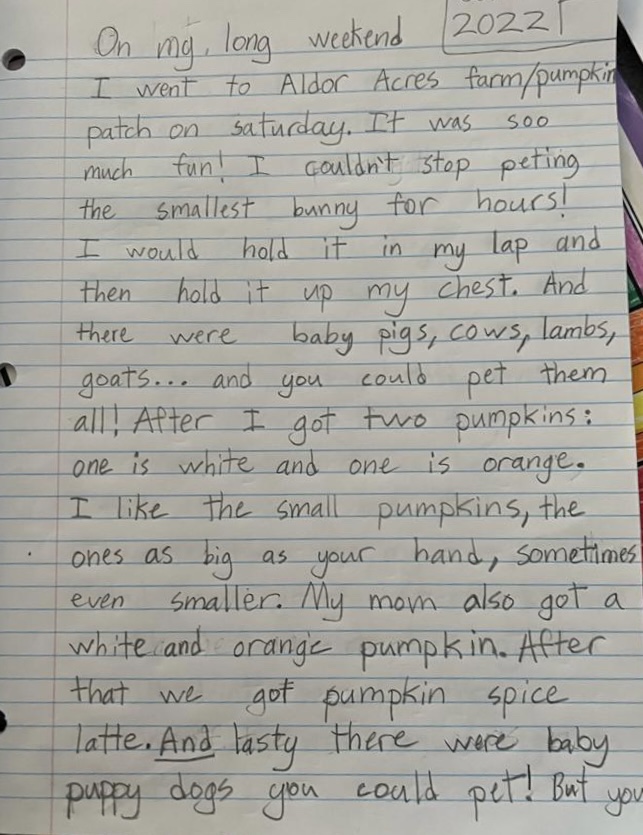 On my long weekend 2022
I went to Aldor Acres farm/pumpkin
patch on saturday. It was soo
much fun! I couldn't stop peting
the smallest bunny for hours!
I would hold it in my lap and
then hold it up my chest. And
there were baby pigs, cows, lambs,
goats... and you could pet them
all! After I got two pumpkins:
one is white and one is orange.
I like the small pumpkins, the
ones as big as your hand, sometimes
even smaller. My mom also got a
white and orange pumpkin. After
that we got pumpkin spice
latte. And lasty there were baby
puppy dogs you could pet! But you